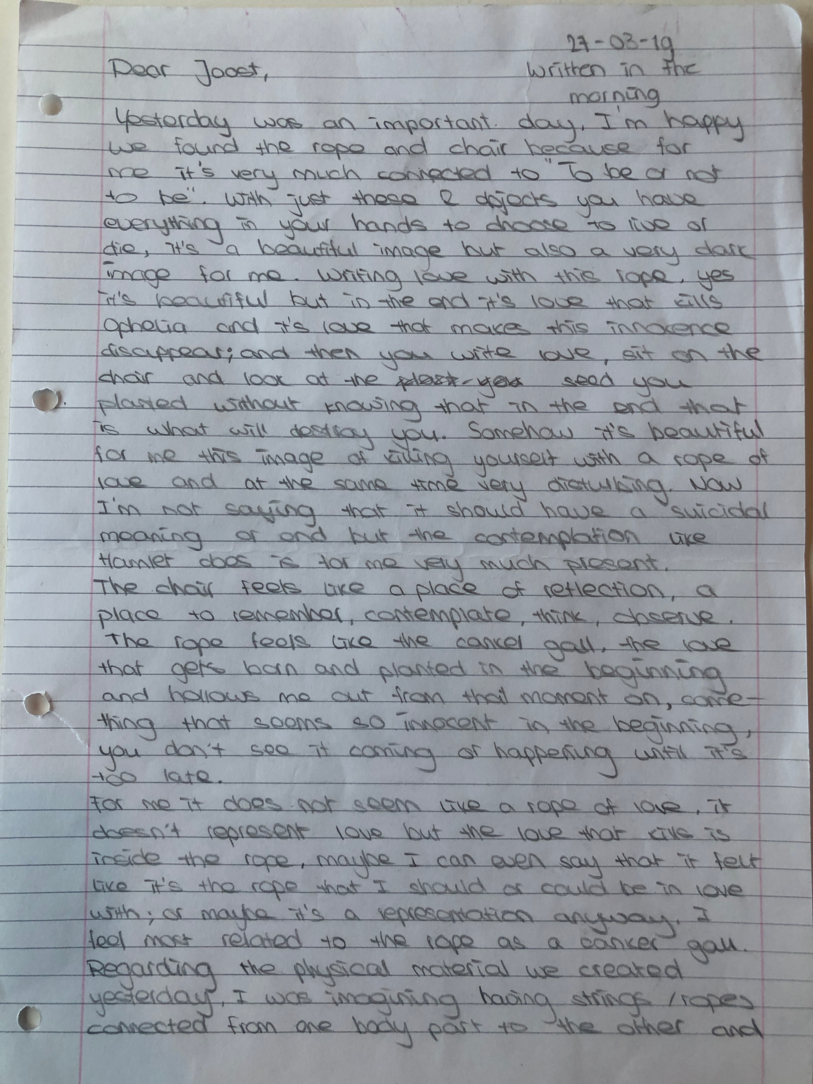 27-03-19
Dear Joost,
Written in the
morning
Yesterday was an important day, I'm happy
we found the rope and chair because for
me it's very much connected to "To be or not
to be". With just these 2 objects you have
everything in your hands to choose to live or
die, it's a beautiful image but also a very dark
image for me. Writing love with this rope, yes
it's beautiful but in the end it's love that kills
Ophelia and it's love that makes this innocence
disappear; and then you write love, sit on the
chair and look at the seed you
planted without knowing that in the end that
is what will destroy you. Somehow it's beautiful
for me this image of killing yourself with a rope of
love and at the same time very disturbing. Now
I'm not saying that it should have a suicidal
meaning or end but the contemplation like
Hamlet does is for me very much present.
The chair feels like a place of reflection, a
place to remember, contemplate, think, observe.
The rope feels like the canker gall, the love
that gets born and planted in the beginning
and hollows me out from that moment on, some-
thing that seems so innocent in the beginning,
you don't see it coming or happening until it's
too late.
For me it does not seem like a rope of love, it
doesn't represent love but the love that kills is
inside the rope, maybe I can even say that it felt
like it's the rope that I should or could be in love
with; or maybe it's a representation anyway. I
feel most related to the rope as a canker gall.
Regarding the physical material we created
yesterday, I was imagining having strings/ropes
connected from one body part to the other and